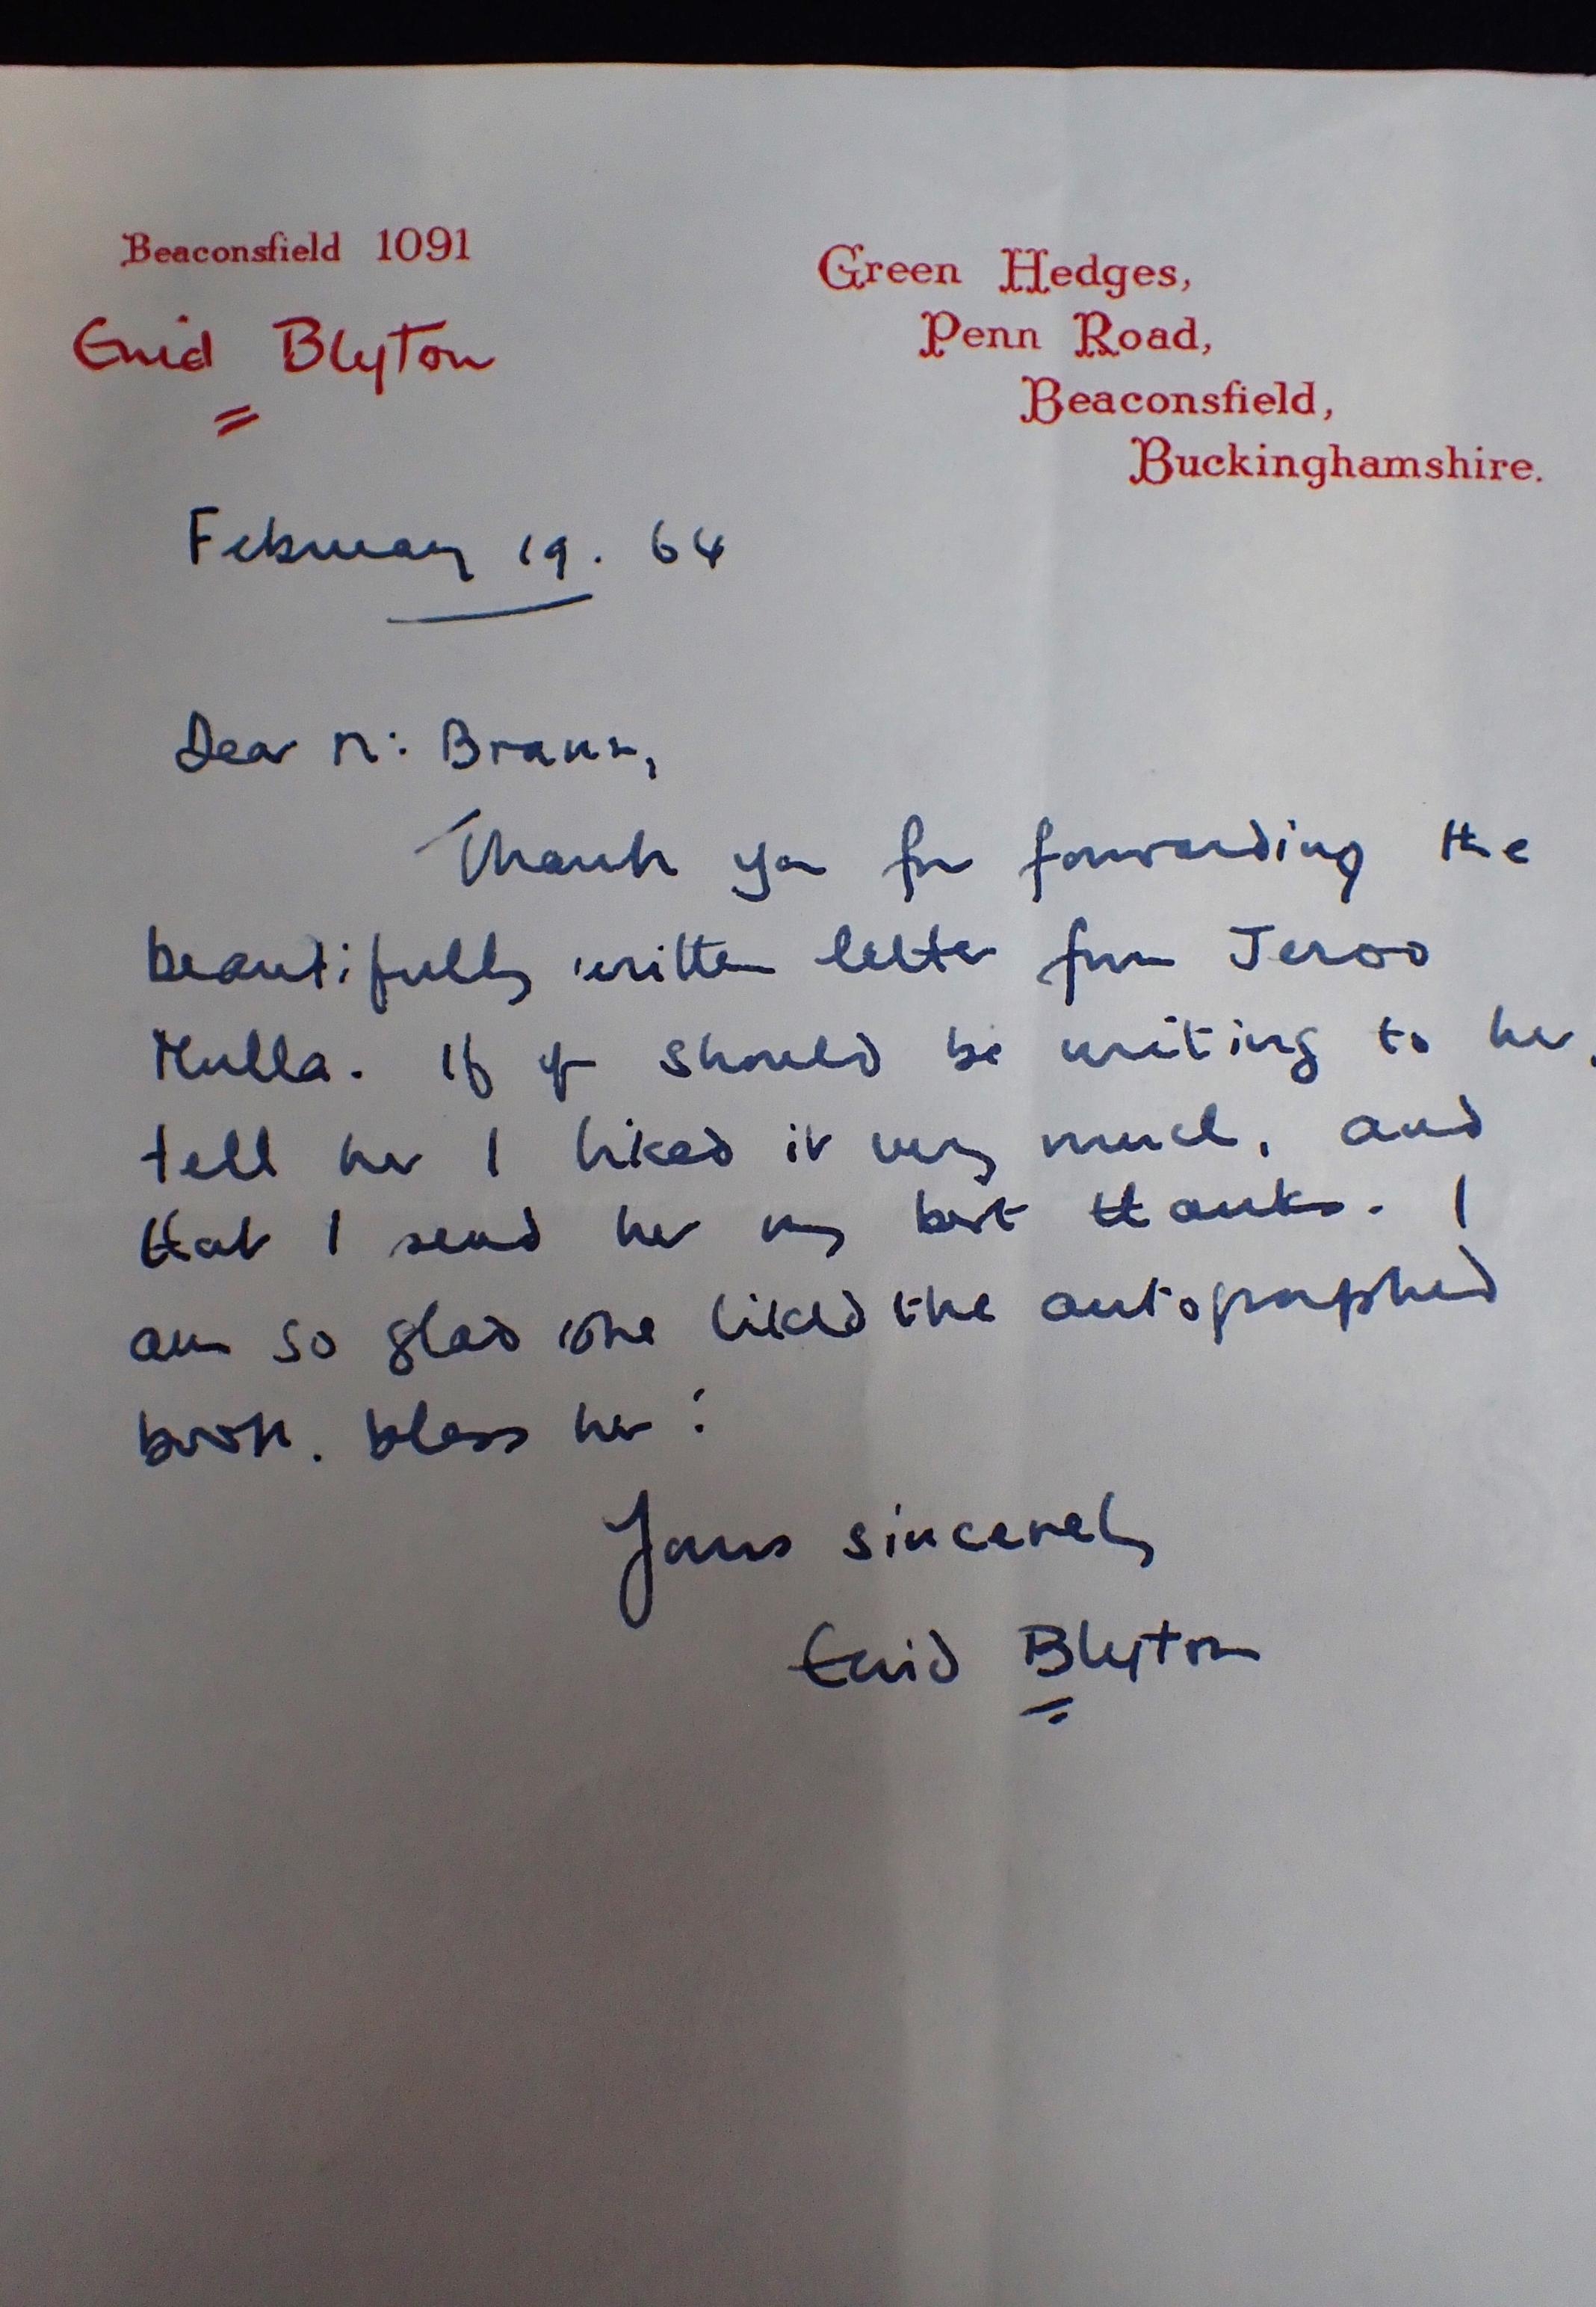 Beaconsfield 1091
Enid Blyton
Green Hedges,
Penn Road,
Beaconsfield,
Buckinghamshire.
February 19. 64
Dear Mr:
Thank you for forwarding the
beautifully written letter from Jeroo
Mulla. If you should be writing to her,
tell her I liked it very much, and
that I send her my best thanks. I
am so glad she liked the autographed
book. bless her!
Yours sincerely
Enid Blyton